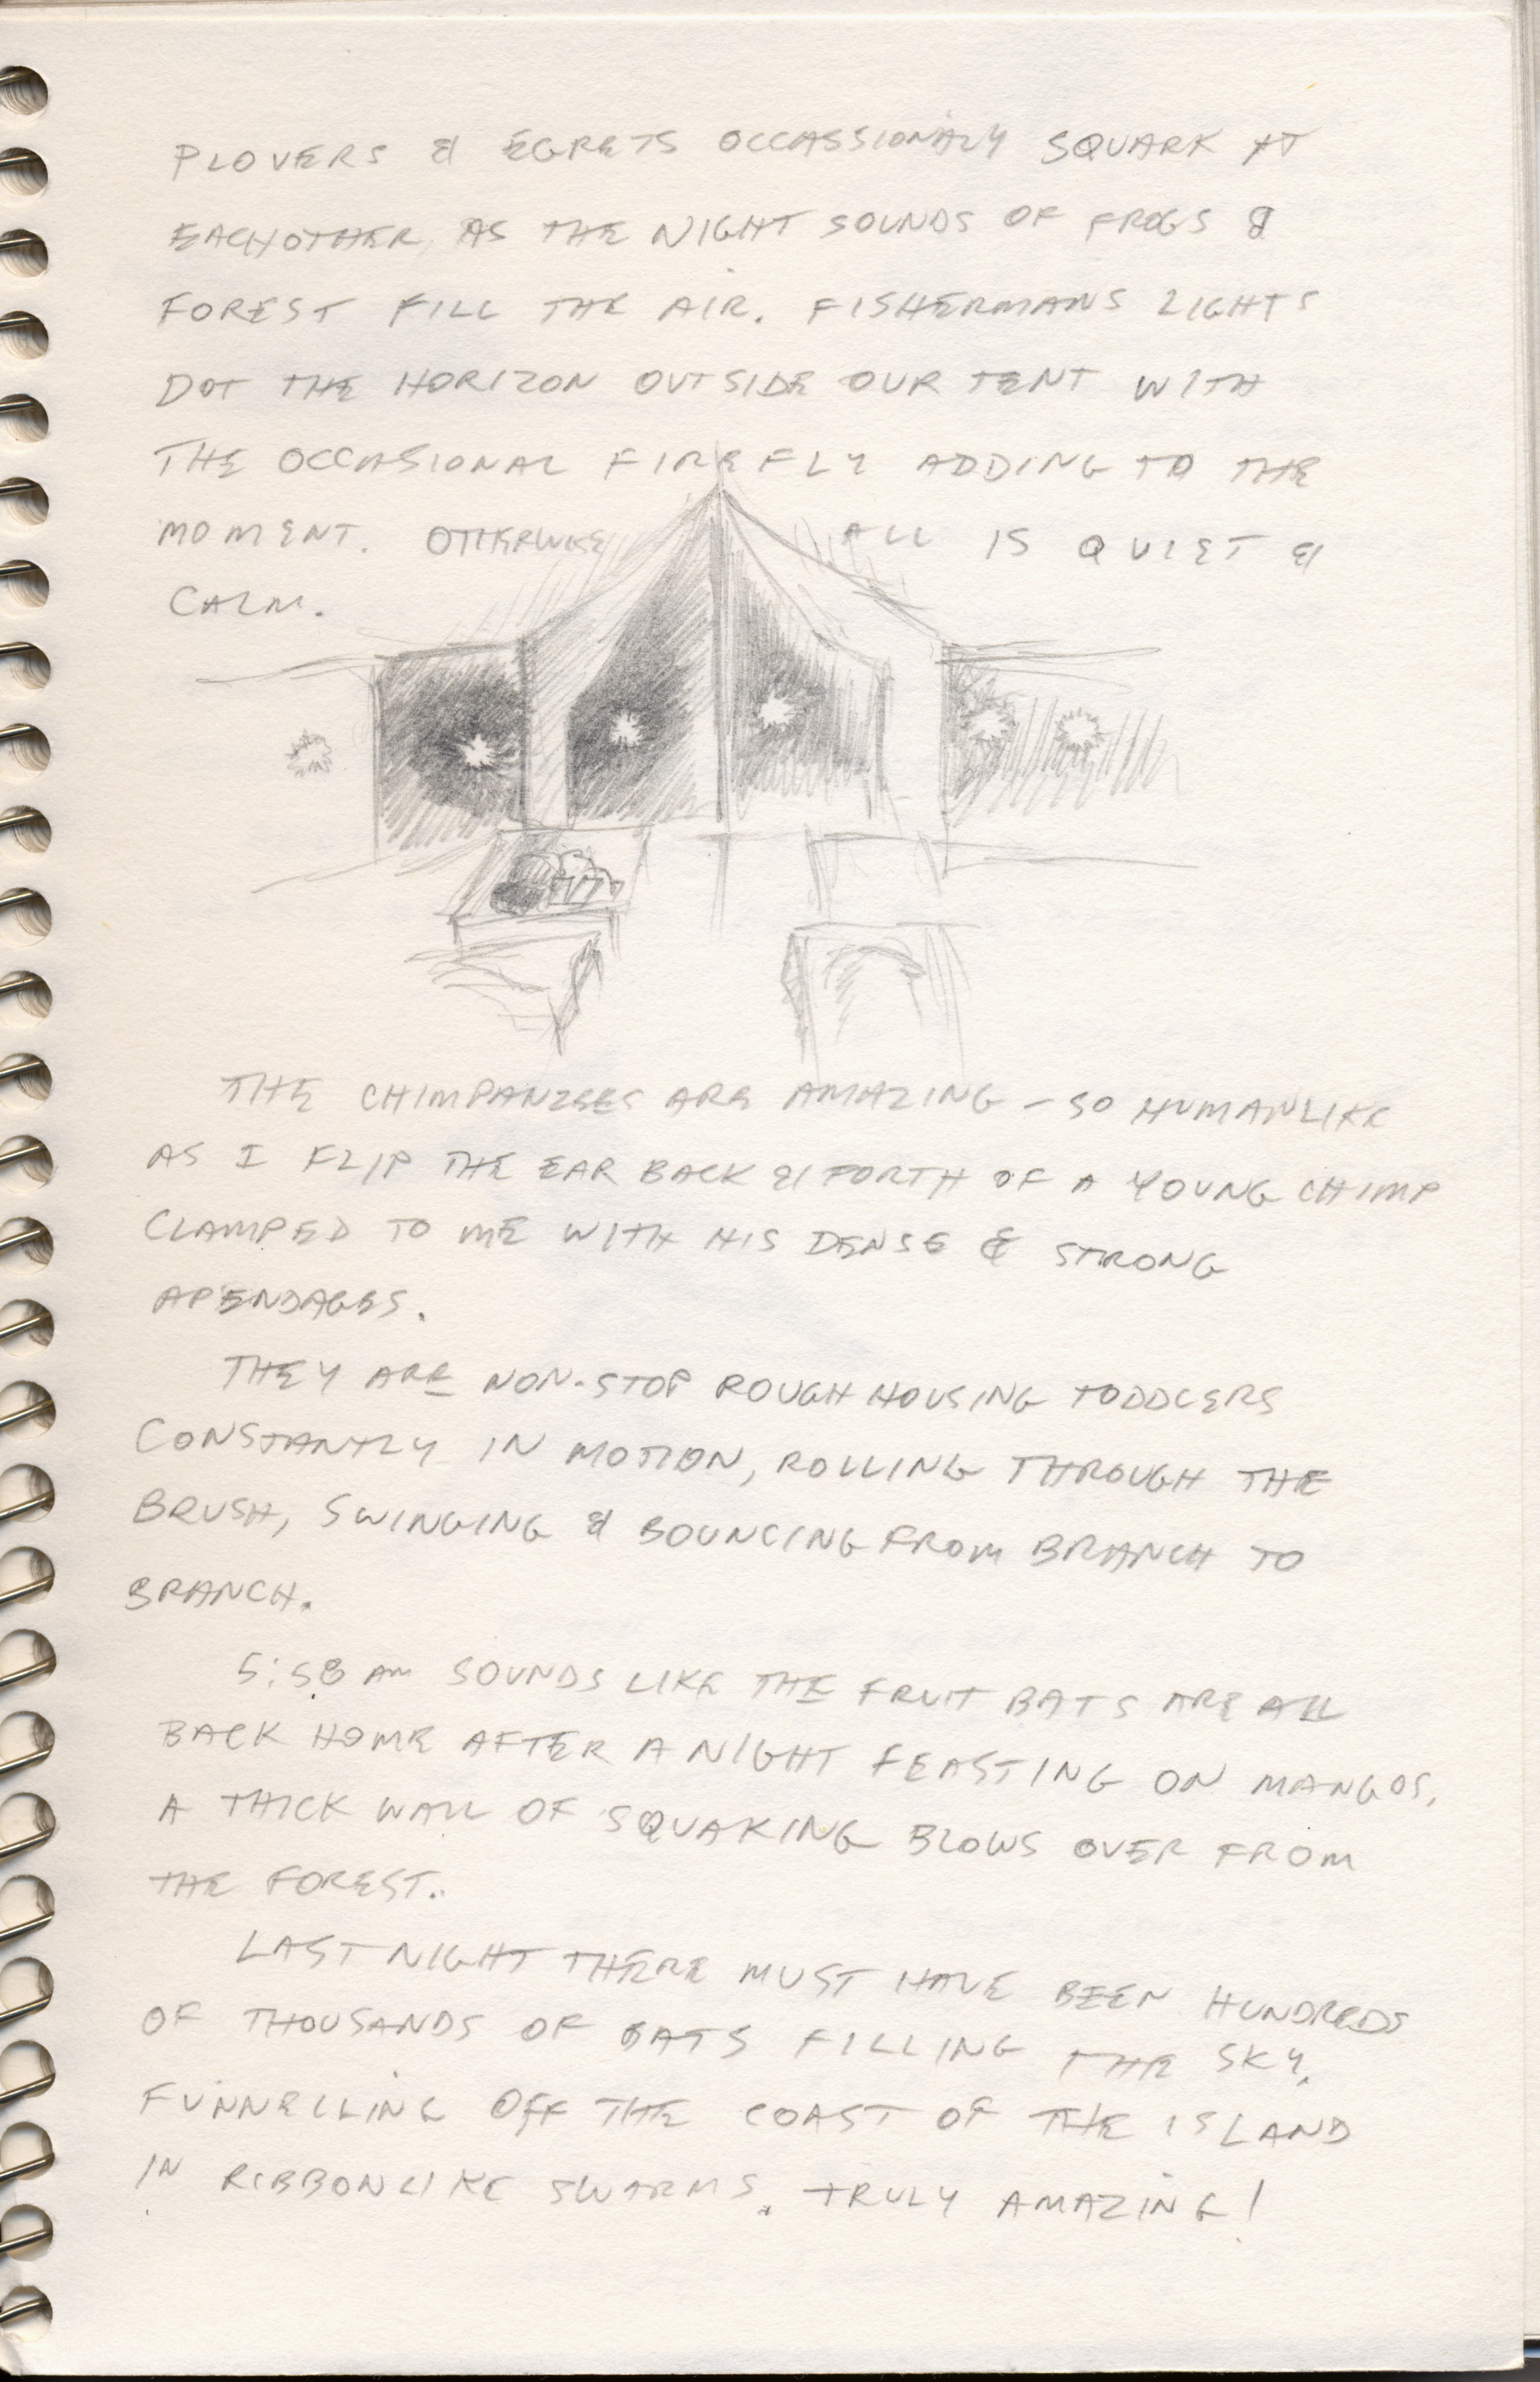 PLOVERS & EGRETS OCCASSIONALY SQUARK AT
EACHOTHER, AS THE NIGHT SOUNDS OF FROGS &
FOREST FILL THE AIR. FISHERMANS LIGHTS
DOT THE HORIZON OUTSIDE OUR TENT WITH
THE OCCASIONAL FIREFLY ADDING TO THE
MOMENT. OTHERWISE ALL IS QUIET &
CALM.
THE CHIMPANZEES ARE AMAZING - SO HUMANLIKE
AS I FLIP THE EAR BACK & FORTH OF A YOUNG CHIMP
CLAMPED TO ME WITH HIS DENSE & STRONG
APENDAGES.
THEY ARE NON-STOP ROUGH HOUSING TODDLERS
CONSTANTLY IN MOTION, ROLLING THROUGH THE
BRUSH, SWINGING & BOUNCING FROM BRANCH TO
BRANCH.
5:58 AM SOUNDS LIKE THE FRUIT BATS ARE ALL
BACK HOME AFTER A NIGHT FEASTING ON MANGOS.
A THICK WALL OF SQUAKING BLOWS OVER FROM
THE FOREST.
LAST NIGHT THERE MUST HAVE BEEN HUNDREDS
OF THOUSANDS OF BATS FILLING THE SKY,
FUNNELLING OFF THE COAST OF THE ISLAND
IN RIBBONLIKE SWARMS. TRULY AMAZING!